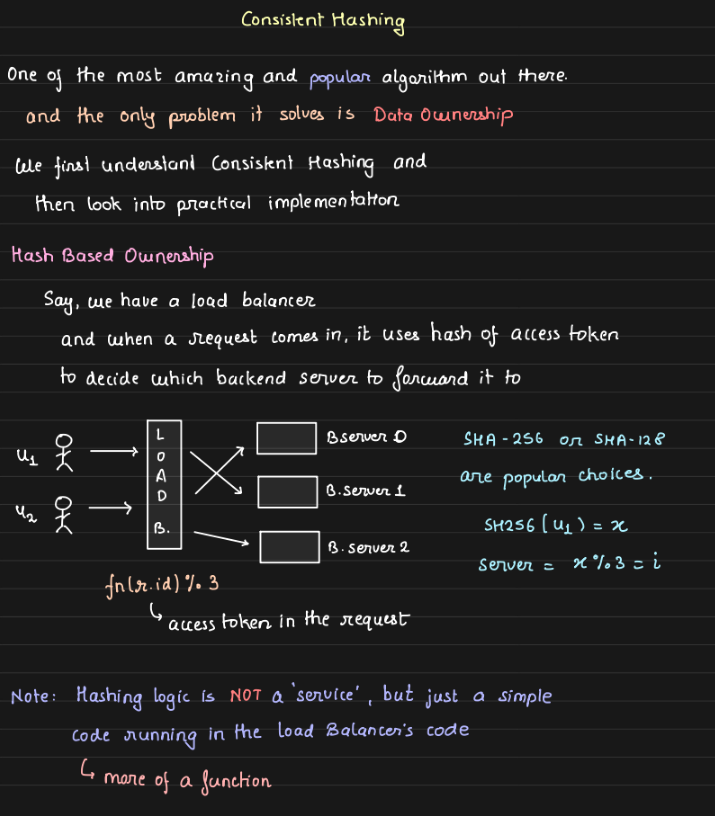 Consistent Hashing
One of the most amazing and popular algorithm out there.
and the only problem it solves is Data Ownership
We first understant Consistent Hashing and
then look into practical implementation
Hash Based Ownership
Say, we have a load balancer
and when a request comes in, it uses hash of access token
to decide which backend server to forward it to
u1
u2
L
O
A
D
B.
B server 0
B. server 1
B. server 2
SHA-256 or SHA-128
are popular choices.
SH256(u1) = x
server = x % 3 = i
fn(r.id) % 3
access token in the request
Note: Hashing logic is NOT a 'service', but just a simple
code running in the load Balancer's code
more of a function